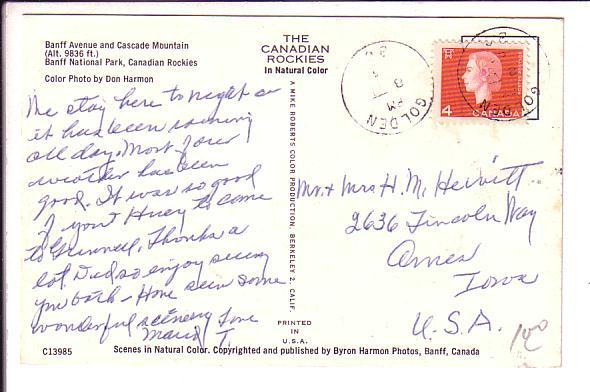 Banff Avenue and Cascade Mountain
(Alt. 9836 ft.)
Banff National Park, Canadian Rockies
Color Photo by Don Harmon
THE
CANADIAN
ROCKIES
In Natural Color
A MIKE ROBERTS COLOR PRODUCTION, BERKELEY 2, CALIF.
PRINTED
IN
U.S.A.
GOLDEN
PM
8
4
CANADA
GOLDEN
We stay here tonight as
it has been raining
all day. Most of our
weather has been
good. It was so good
of you & Huey to come
to Grinnell, Thanks a
lot. Did so enjoy seeing
you both - Have seen some
wonderful scenery Love
Marie T.
Mr. & Mrs H. M. Hewitt
2636 Lincoln Way
Ames
Iowa
U.S.A.
100
C13985
Scenes in Natural Color. Copyrighted and published by Byron Harmon Photos, Banff, Canada